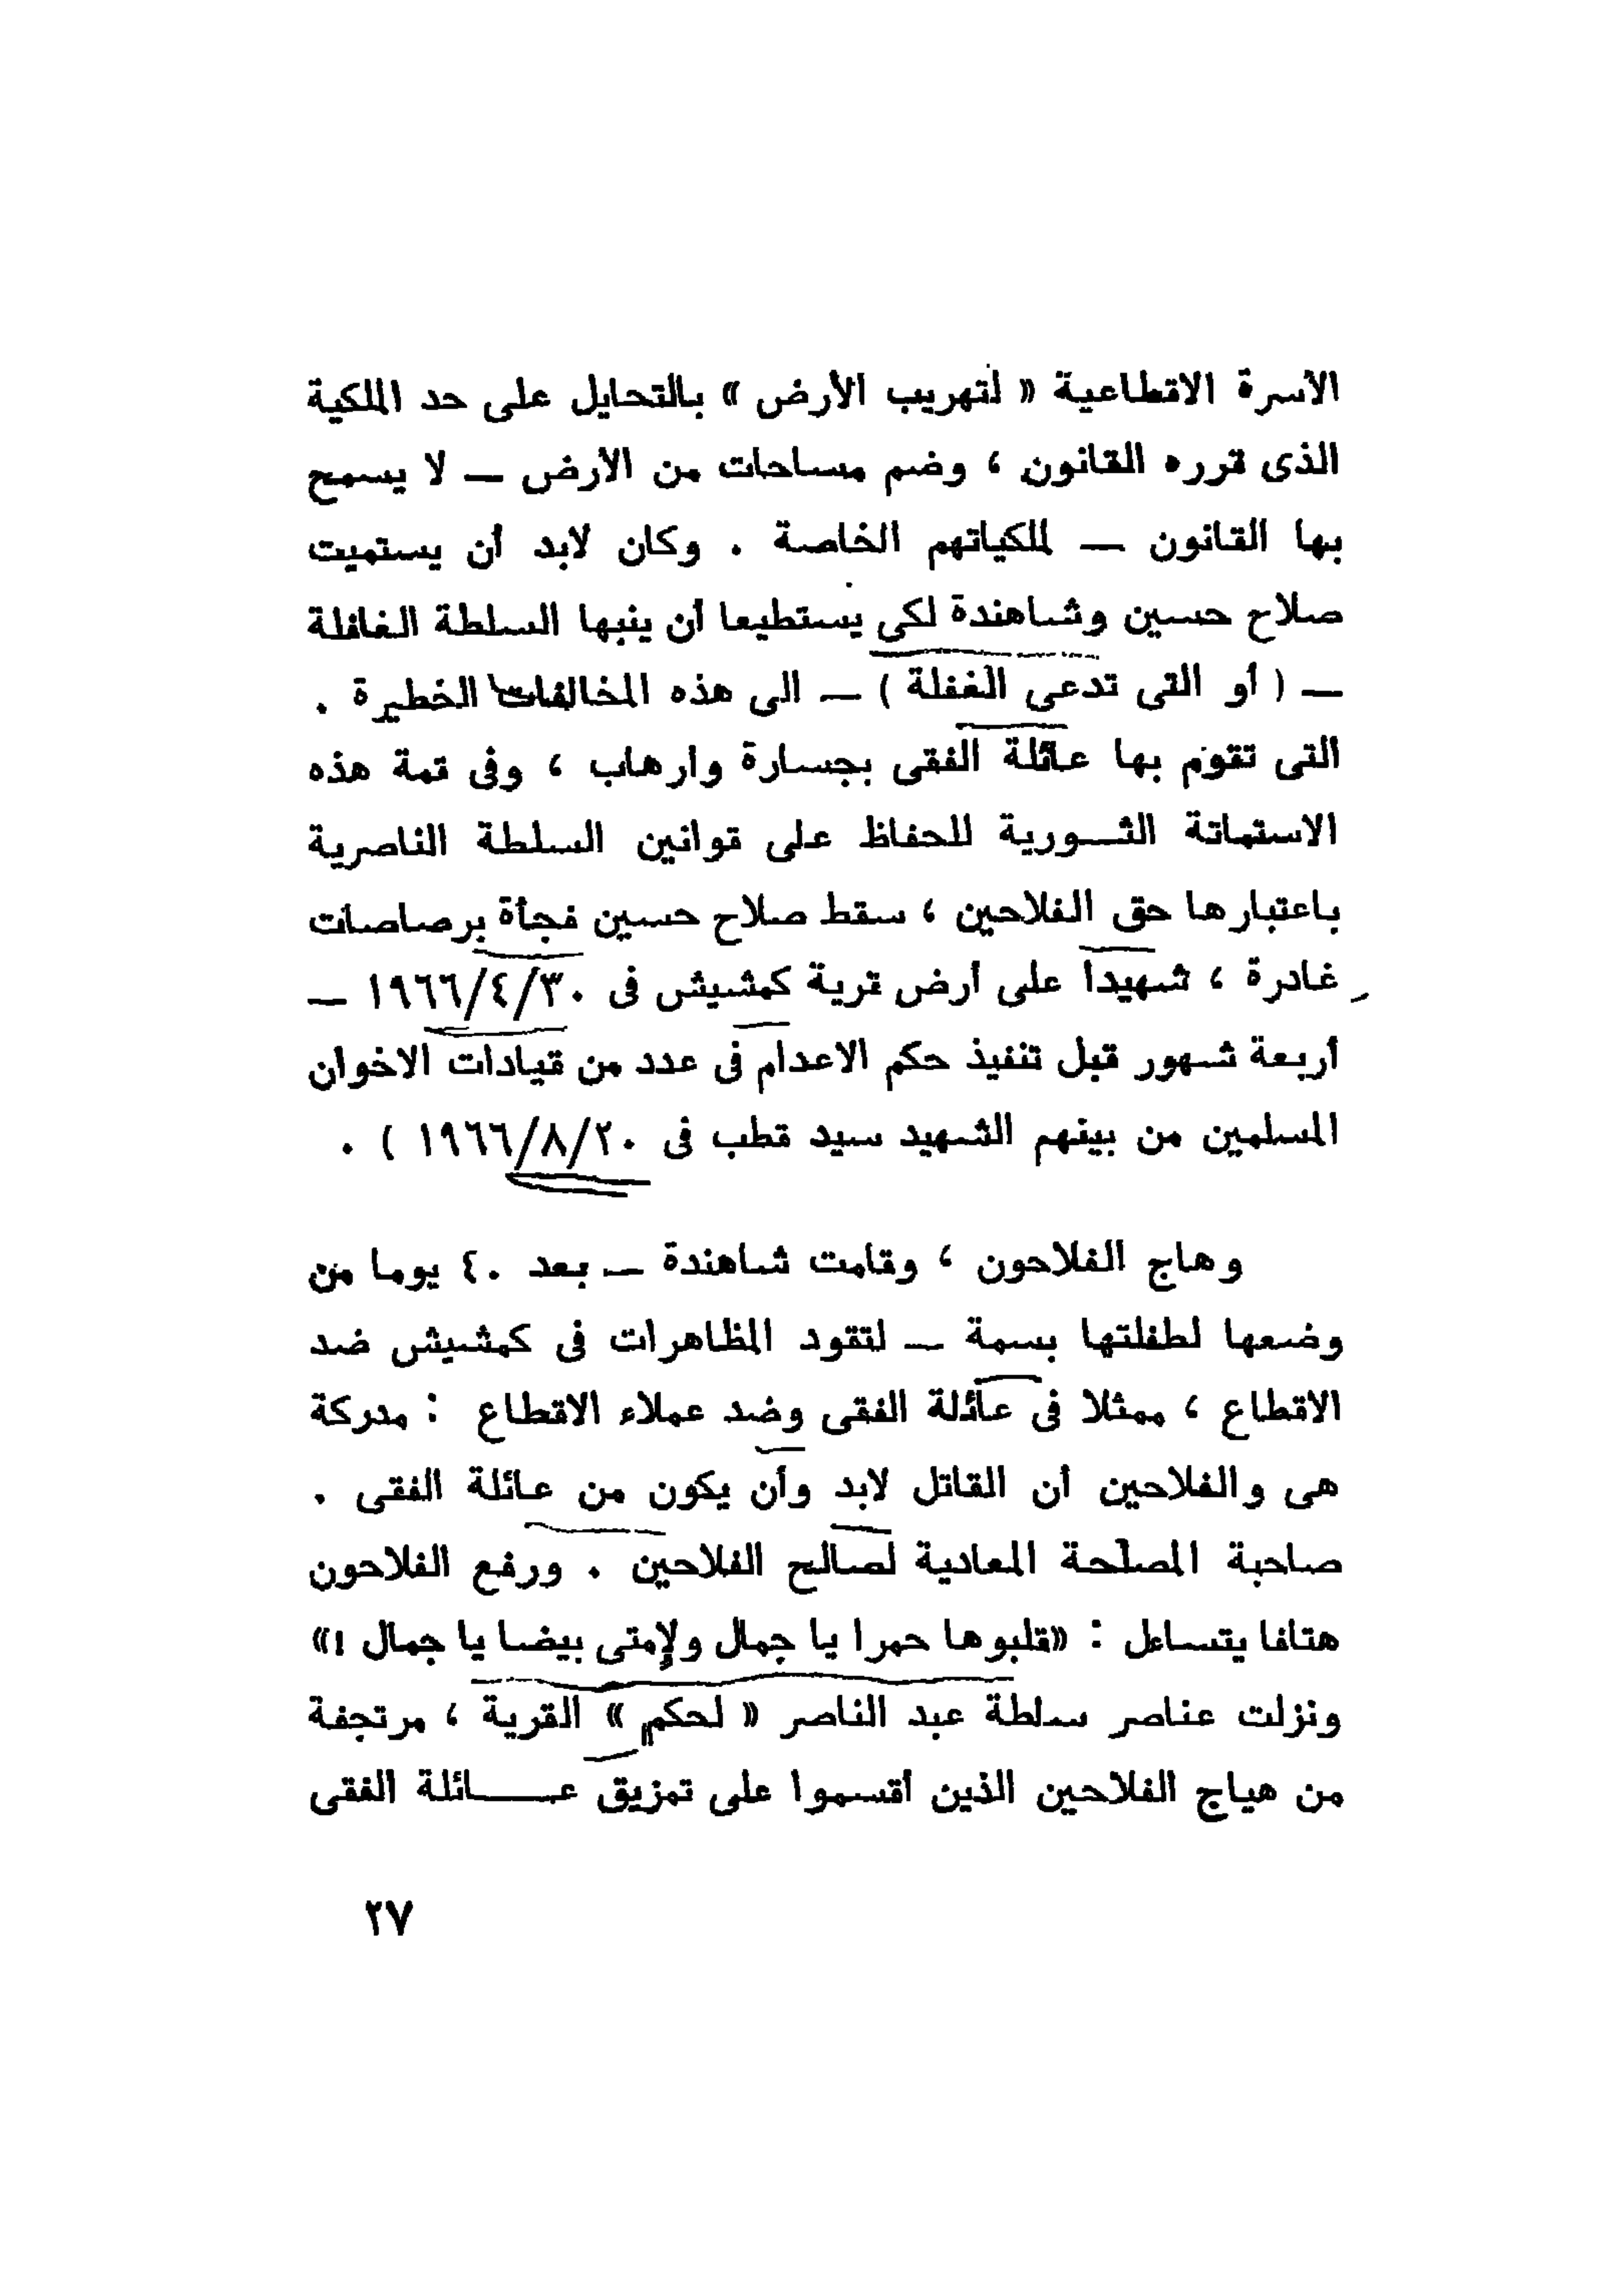 الأسرة الاقطاعية « لتهريب الأرض » بالتحايل على حد الملكية
الذى قرره القانون ، وضم مساحات من الأرض — لا يسمح
بها القانون — لملكياتهم الخاصة . وكان لابد أن يستميت
صلاح حسين وشاهندة لكى يستطيعا أن ينبها السلطة الغافلة
— ( أو التى تدعى الغفلة ) — الى هذه المخالفات الخطيرة .
التى تقوم بها عائلة الفقى بجسارة وارهاب ، وفى قمة هذه
الاستماتة الثورية للحفاظ على قوانين السلطة الناصرية
باعتبارها حق الفلاحين ، سقط صلاح حسين فجأة برصاصات
غادرة ، شهيدا على أرض قرية كمشيش فى ١٩٦٦/٤/٣٠ —
أربعة شهور قبل تنفيذ حكم الاعدام فى عدد من قيادات الاخوان
المسلمين من بينهم الشهيد سيد قطب فى ١٩٦٦/٨/٢٠ ) .
وهاج الفلاحون ، وقامت شاهندة — بعد ٤٠ يوما من
وضعها لطفلتها بسمة — لتقود المظاهرات فى كمشيش ضد
الاقطاع ، ممثلا فى عائلة الفقى وضد عملاء الاقطاع : مدركة
هى والفلاحين أن القاتل لابد وأن يكون من عائلة الفقى .
صاحبة المصلحة المعادية لصالح الفلاحين . ورفع الفلاحون
هتافا يتساءل : «قلبوها حمرا يا جمال ولإمتى بيضا يا جمال !»
ونزلت عناصر سلطة عبد الناصر « لحكم » القرية ، مرتجفة
من هياج الفلاحين الذين أقسموا على تمزيق عائلة الفقى
٢٧